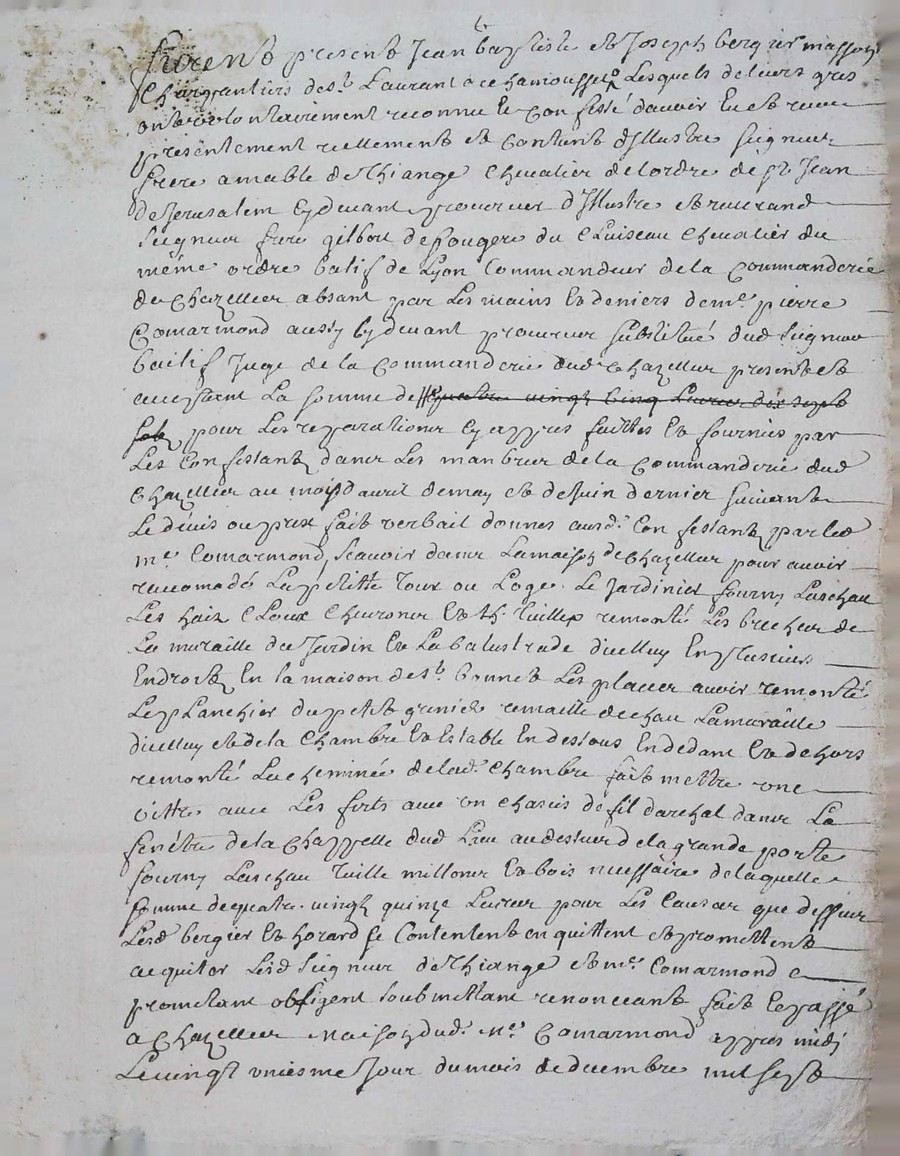 furent present Jean baptiste et Joseph bergier massons
Charpantiers de st. Laurant de chamousset Lesquels de leurs gres
ont volontairement reconnu et confessé dauoir Eu et receu
presentement reellement et Contant d'Illustre Seigneur
frere amable de Thiange Chevalier de lordre de st Jean
de Jerusalem cy deuant procureur d'Illustre et reuerand
Seigneur frere gilbert de fougere du Cluiseau Cheualier du
même ordre balif de Lyon Commandeur de la Commanderie
de Chazelles absant par Les mains et deniers de me. pierre
Comarmond aussy cy deuant procureur substitué dud Seigneur
bailif Juge de la Commanderie dud Chazelles present et
acceptant La somme de quatre vingt Cinq Liures dix sept
sols pour Les reparations cy appres faittes et fournies par
Les Confessants dans Les manbres de la Commanderie dud
Chazelles au mois d'auril de may et de Juin dernier suiuant
Le deuis ou prix fait verbail donnes ausd. Confessants par led
me. Comarmond, scauoir dans La maison de Chazelles pour auoir
racomodé La petitte Tour ou Loge Le Jardinier fourny La chau
Les Clous Cheurons et Tuilles remonté Les breches de
La muraille du Jardin et La balustrade dicelluy En plusieurs
Endroits En la maison de st. bonnet Les places auoir remonté
Le planchier du petit grenier remaillé de chau La muraille
dicelluy et de la Chambre et Estable En dessous En dedans et dehors
remonté La cheminée de lad. Chambre fait mettre vne
vittre auec Les ferts auec vn chasis de fil darchal dans La
fenétre de la Chappelle dud Lieu au dessus de la grande porte
fourny La chau Tuille millons et bois necessaire de laquelle
somme de quatre vingt quinze Liures pour Les Causes que dessus
Lesd bergier et se Contentent en quittent et promettent
acquiter Lesd Seigneur de Thiange et me. Comarmond
promettant obligent soubmettant renonceant fait et passé
a Chazelles Maison dud. Me. Comarmond appres midi
Le vingt vniesme Jour du mois de decembre mil sept